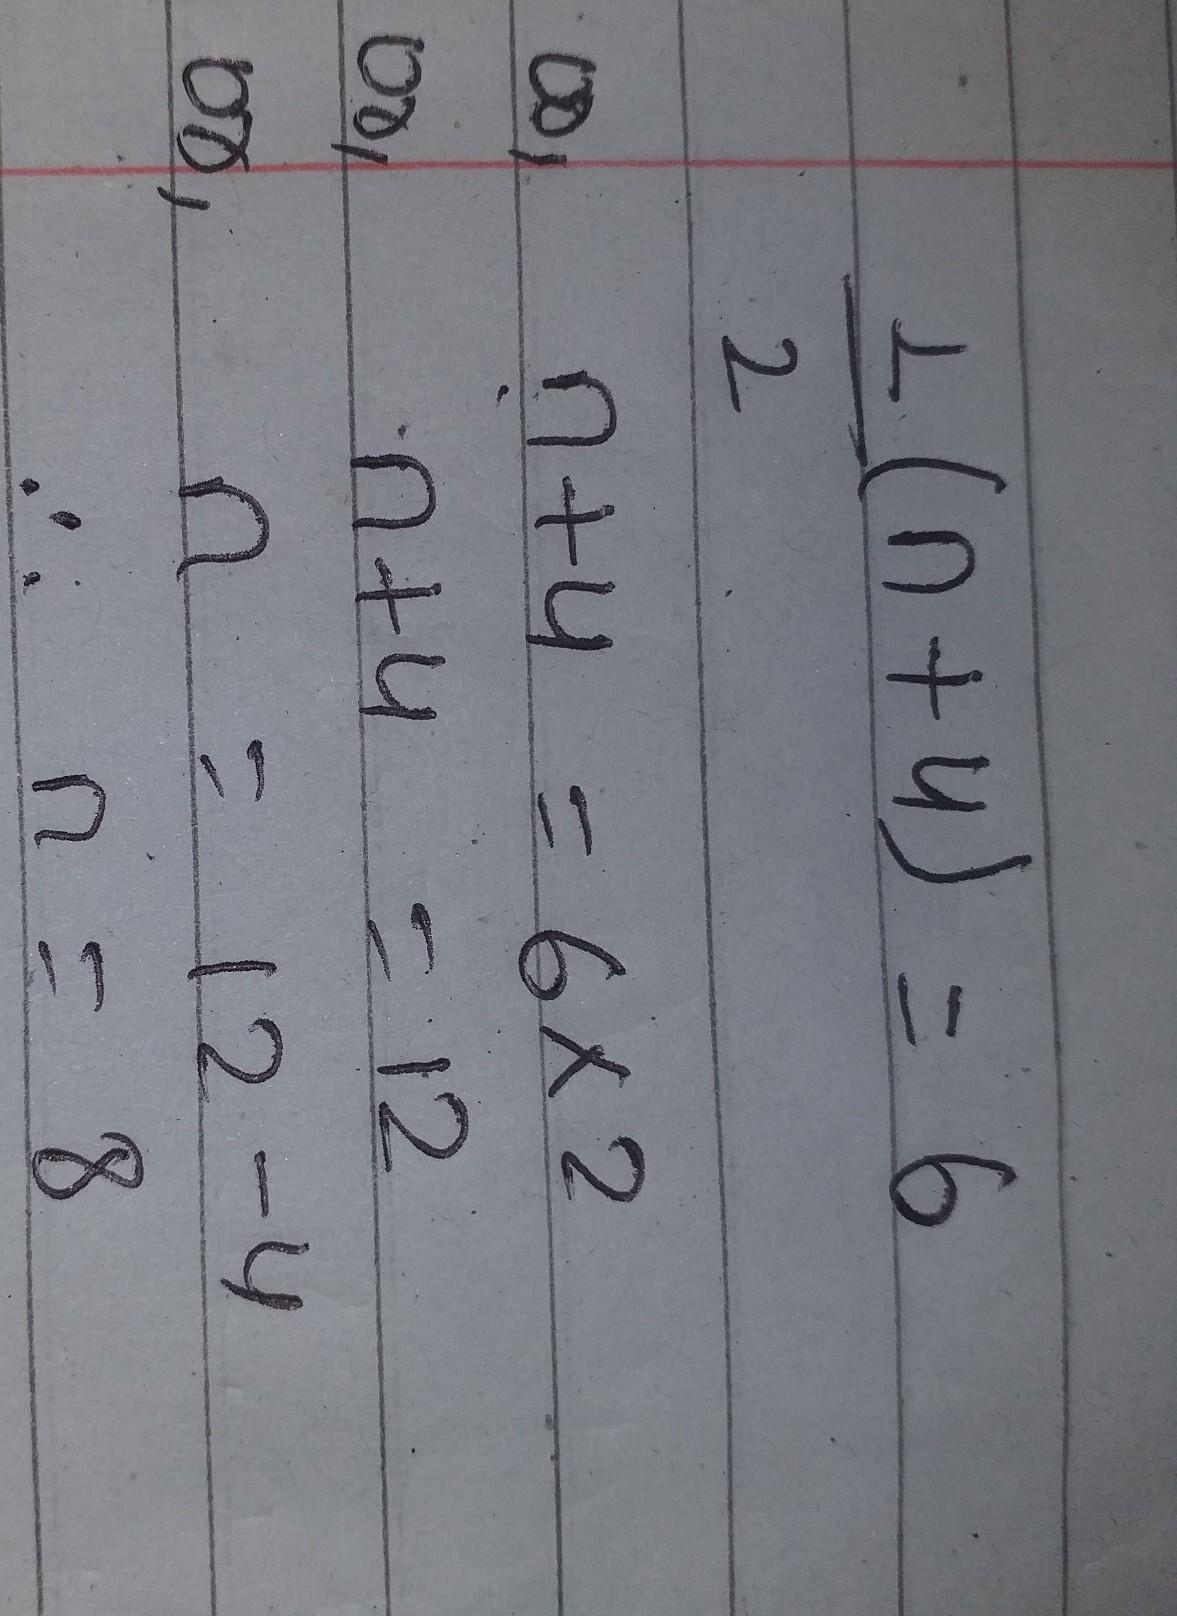 1/2 (n + 4) = 6
or, n + 4 = 6 x 2
or, n + 4 = 12
or, n = 12 - 4
∴ n = 8